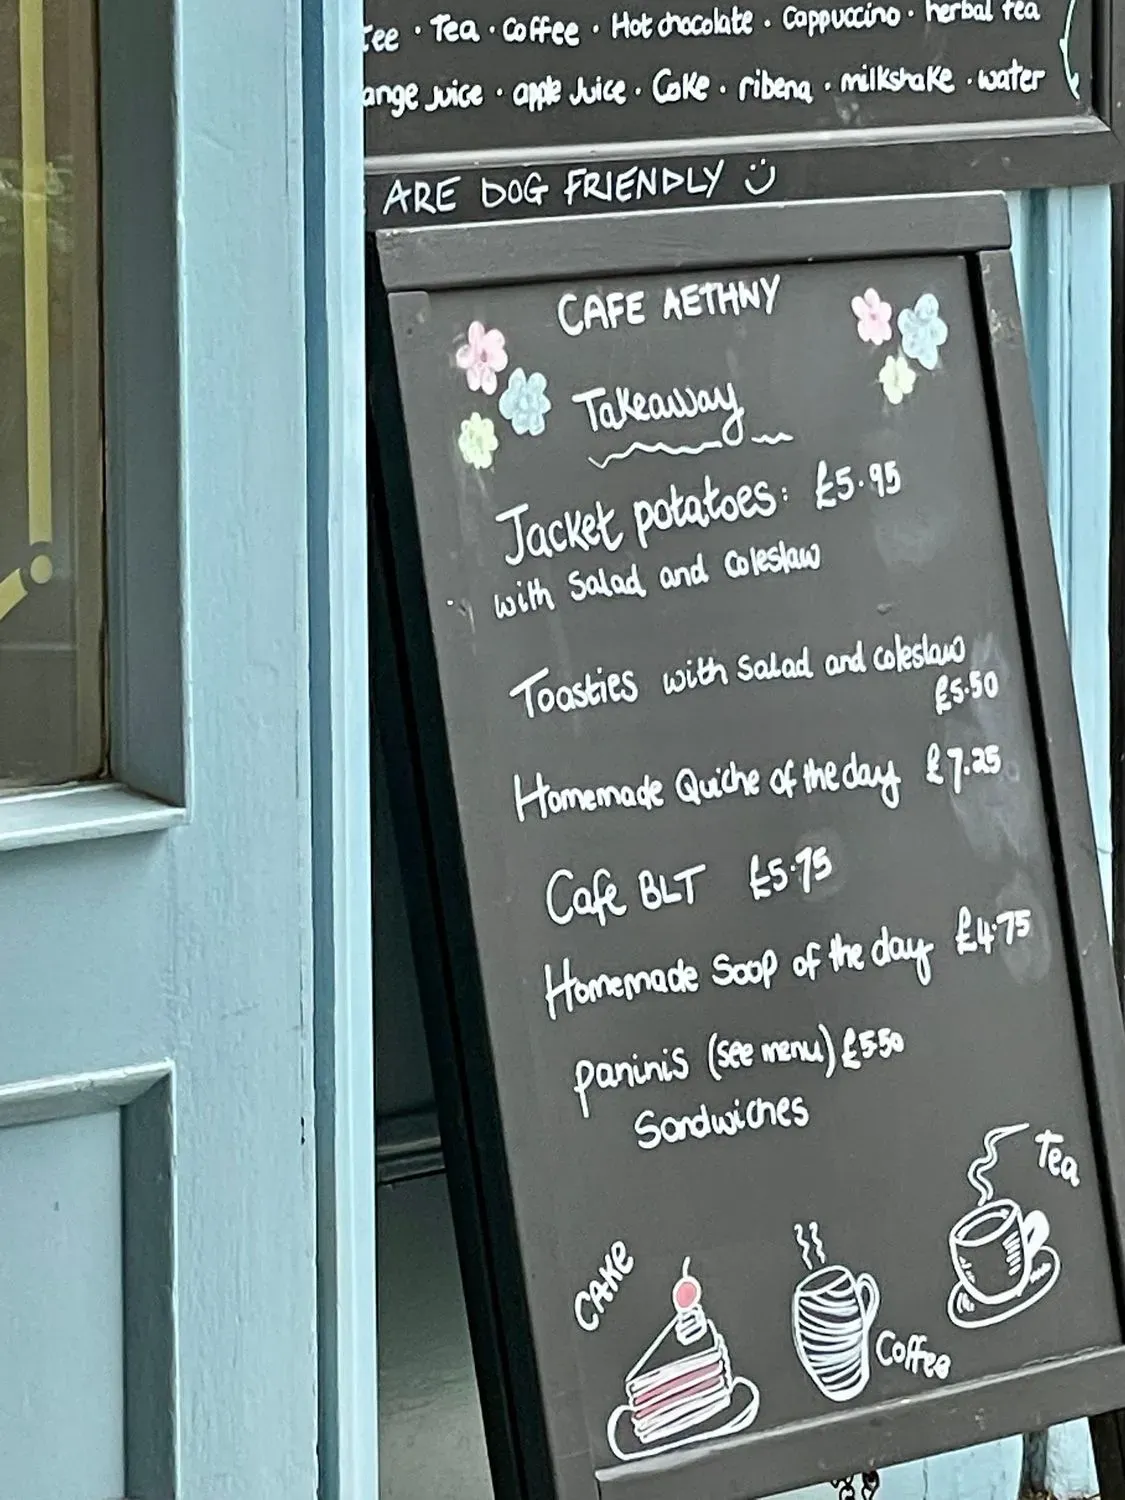 Tea · Coffee · Hot chocolate · Cappuccino · herbal tea
ange juice · apple juice · Coke · ribena · milkshake · water
ARE DOG FRIENDLY
CAFE AETHNY
Takeaway
Jacket potatoes: £5.95
with Salad and Coleslaw
Toasties with Salad and coleslaw
£5.50
Homemade Quiche of the day £7.25
Cafe BLT £5.75
Homemade Soup of the day £4.75
paninis (see menu) £550
Sandwiches
Tea
CAKE
Coffee